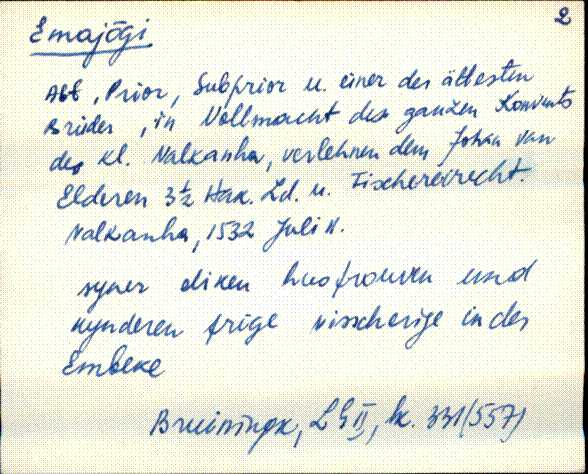 2
Emajõgi
Abt, Prior, Subprior u. einer der ältesten
Brüder, in Vollmacht des ganzen Konvents
des Kl. Valkanha, verlehnen dem Johan van
Elderen 3½ Hak. Ld. u. Fischereirecht.
Valkanha, 1532 Juli 11.
syner eliken husfrouwen und
kynderen frige visscherige in der
Embeke
Bruiningk, LG II, lk. 331 (557)